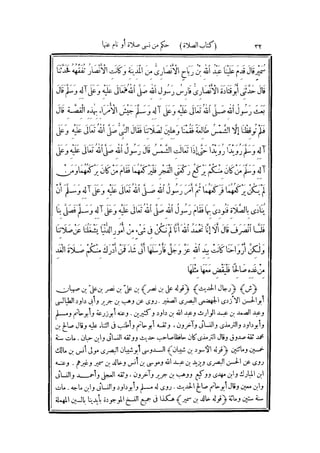 ٣٢ (كتاب الصلاة) حكم من نسى صلاة أو نام عنها
سمير قال قدم علينا عبد الله بن رباح الأنصارى من المدينة وكانت الأنصار تفقهه فحدثنا
قال حدثنى أبو قتادة الأنصارى فارس رسول الله صلى الله تعالى عليه وعلى آله وسلم قال
بعث رسول الله صلى الله تعالى عليه وعلى آله وسلم جيش الأمراء بهذه القصة قال
فلم توقظنا إلا الشمس طالعة فقمنا وهلين لصلاتنا فقال النبى صلى الله تعالى عليه وعلى
آله وسلم رويدا رويدا حتى إذا تعالت الشمس قال رسول الله صلى الله تعالى عليه وعلى
آله وسلم من كان منكم يركع ركعتى الفجر فليركعهما فقام من كان يركعهما ومن
لم يكن يركعهما فركعهما ثم أمر رسول الله صلى الله تعالى عليه وعلى آله وسلم أن
ينادى بالصلاة فنودى بها فقام رسول الله صلى الله تعالى عليه وعلى آله وسلم فصلى بنا
فلما انصرف قال ألا إنا نحمد الله أنا لم نكن فى شىء من أمور الدنيا يشغلنا عن صلاتنا
ولكن أرواحنا كانت بيد الله عز وجل فأرسلها أنى شاء فمن أدرك منكم صلاة الغداة
من غد صالحا فليقض معها مثلها
(ش) (رجال الحديث) (قوله على بن نصر) بن على بن نصر بن على بن صهبان
أبو الحسن الأزدى الجهضمى البصرى الصغير. روى عن وهب بن جرير وأبى داود الطيالسى
وعبد الصمد بن عبد الوارث وعبد الله بن داود وكثيرين. وعنه أبو زرعة وأبو حاتم ومسلم
وأبو داود والترمذى والنسائى وآخرون، وثقه أبو حاتم وأطنب فى الثناء عليه وقال صالح بن
محمد ثقة صدوق وقال الترمذى كان حافظا صاحب حديث ووثقه النسائى وابن حبان. مات سنة
خمسين ومائتين (قوله الأسود بن شيبان) السدوسى أبو شيبان البصرى مولى أنس بن مالك
روى عن الحسن البصرى ويزيد بن عبد الله وموسى بن أنس وخالد بن سمير وغيرهم. وعنه
ابن المبارك وابن مهدى ووكيع ووهب بن جرير وآخرون، وثقه العجلى وأحمد والنسائى
وابن معين وقال أبو حاتم صالح الحديث. روى له مسلم وأبو داود والنسائى وابن ماجه. مات
سنة ستين ومائة (قوله خالد بن سمير) هكذا فى جميع النسخ الموجودة بأيدينا بالسين المهملة